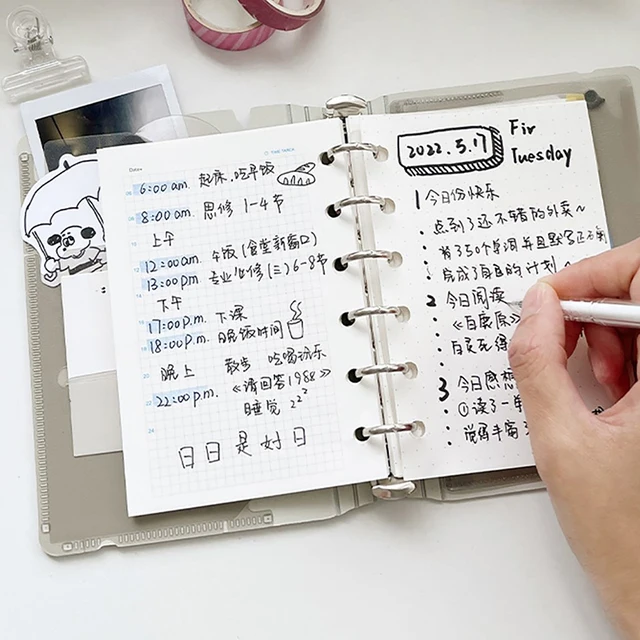 Date
TIME TABLE
6:00 am. 起床.吃早饭
8:00 am. 思修 1-4节
上午
12:00 am. 午饭(食堂新窗口)
13:00 pm. 专业必修(三)6-8节
下午
17:00 P.m. 下课
18:00 P.m. 晚饭时间
晚上 散步 吃喝玩乐
《请回答1988》
22:00 p.m. 睡觉 zzz
日日是好日
2022.5.17 Fir
Tuesday
1 今日份快乐
· 点到了还不错的外卖~
· 背了50个单词并且默写正确
· 完成了每日的计划~
2 今日阅读
《白鹿原
白灵死得
3 今日感想
①读了一
· 觉得手